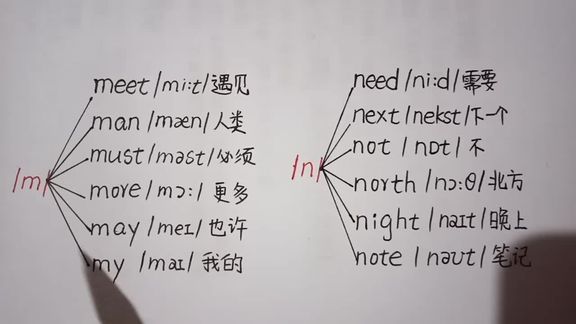 /m/
meet /mi:t/ 遇见
man /mæn/ 人类
must /məst/ 必须
more /mɔ:/ 更多
may /meɪ/ 也许
my /maɪ/ 我的
/n/
need /ni:d/ 需要
next /nekst/ 下一个
not /nɒt/ 不
north /nɔ:θ/ 北方
night /naɪt/ 晚上
note /nəʊt/ 笔记